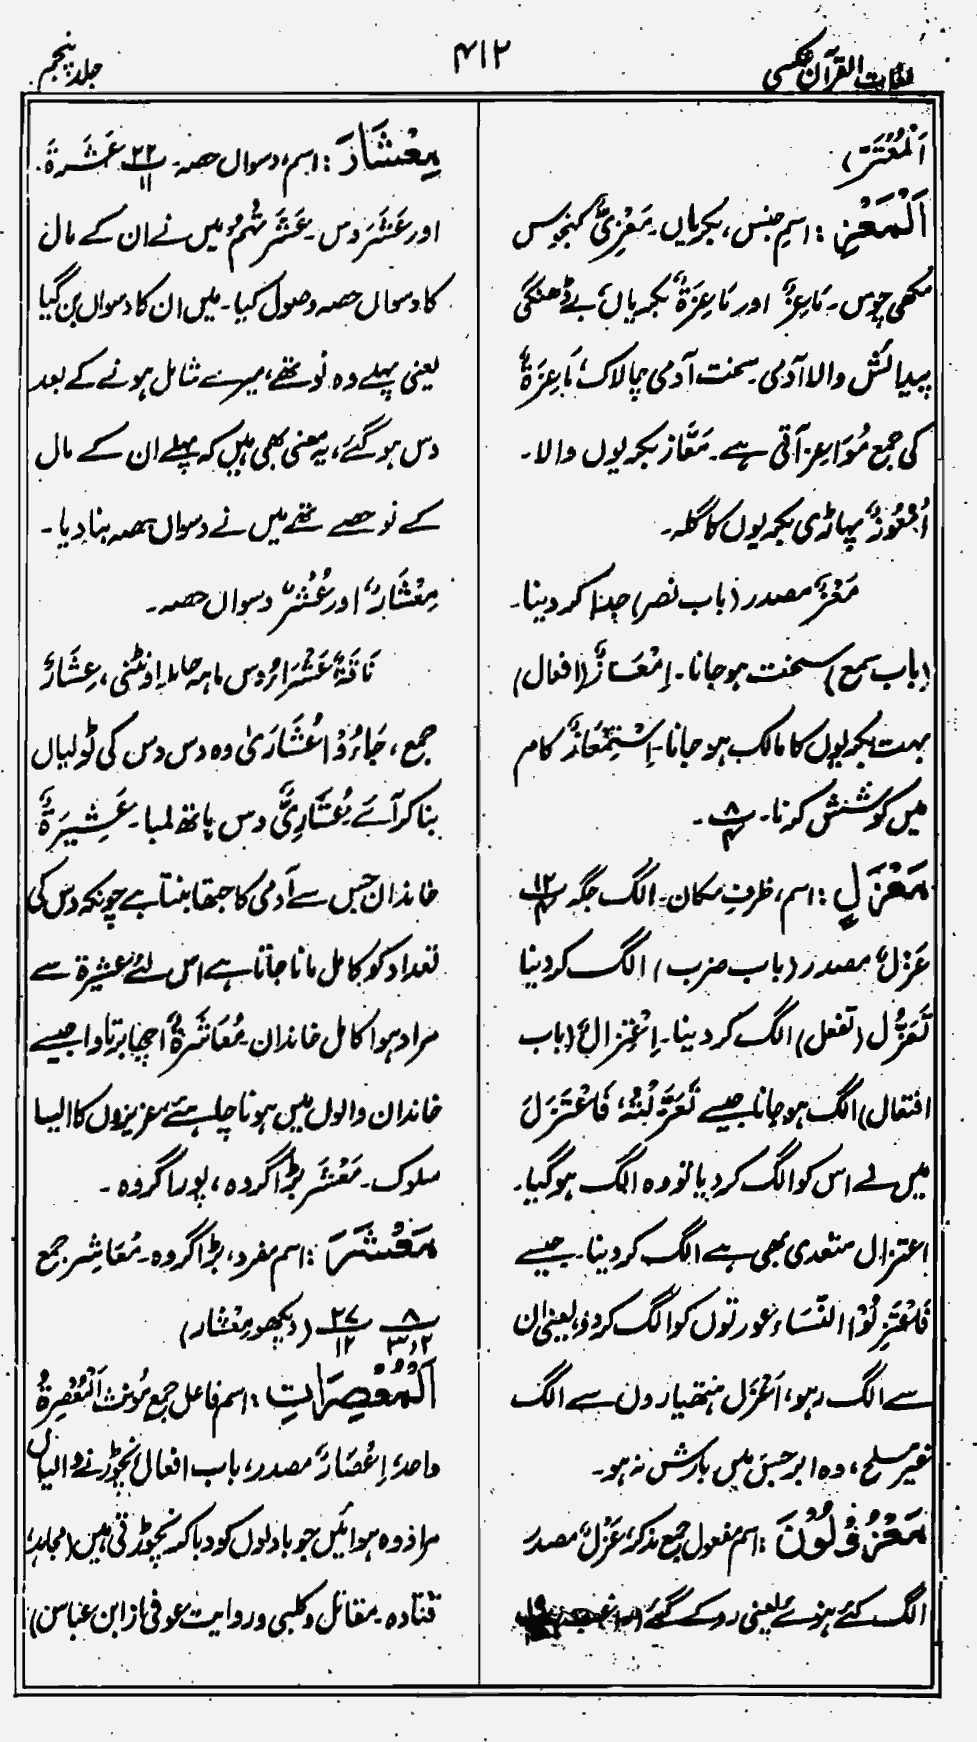 لغات القرآن عکسی
۴۱۲
جلد پنجم
اَلْمُعْتَرَّ)
اَلْمَعْزِ : اسمِ جنس، بکریاں۔ مَعْزِیٌّ کنجوس
مکھی چوس۔ مَاعِزٌ اور مَاعِزَةٌ بکریاں، بے ڈھنگی
پیدائش والا آدمی۔ سخت آدمی چالاک، مَاعِزَةٌ
کی جمع مَوَاعِز آتی ہے۔ مَعَّاز بکریوں والا۔
اُمْعُوْزٌ پہاڑی بکریوں کا گلہ۔
مَعْزٌ مصدر (باب نصر) جدا کر دینا۔
(باب سمع) سخت ہو جانا۔ اِمْعَازٌ (افعال)
بہت بکریوں کا مالک ہو جانا۔ اِسْتِمْعَازٌ کام
میں کوشش کرنا۔ پ ۸/۴ ۔
مَعْزِلٍ : اسم، ظرفِ مکان۔ الگ جگہ پ ۱۲/۴
عَزْلٌ مصدر (باب ضرب) الگ کر دینا
تَعَزُّل (تفعل) الگ کر دینا۔ اِعْتِزَالٌ (باب
افتعال) الگ ہو جانا جیسے تَعَزَّلْتُهٗ، فَاعْتَزَلَ
میں نے اس کو الگ کر دیا تو وہ الگ ہو گیا۔
اعتزال متعدی بھی ہے الگ کر دینا۔ جیسے
فَاعْتَزِلُوْا النِّسَاءَ عورتوں کو الگ کر دو، یعنی ان
سے الگ رہو، اَعْزَل ہتھیاروں سے الگ
غیر مسلح، وہ ابر جس میں بارش نہ ہو۔
مَعْزُوْلُوْنَ : اسم مفعول جمع مذکر، عَزْلٌ مصدر
الگ کئے ہوئے یعنی روکے گئے
مِعْشَارَ : اسم، دسواں حصہ۔ پ ۲۲/۱۱ عَشَرَةٌ۔
اور عَشَر دس۔ عَشَرْتُهُمْ میں نے ان کے مال
کا دسواں حصہ وصول کیا۔ میں ان کا دسواں بن گیا
یعنی پہلے وہ نو تھے، میرے شامل ہونے کے بعد
دس ہو گئے، یہ معنی بھی ہیں کہ پہلے ان کے مال
کے نو حصے تھے میں نے دسواں حصہ بنا دیا۔
مِعْشَارٌ اور عُشْرٌ دسواں حصہ۔
نَاقَةٌ عَشْرَاءُ دس ماہہ حاملہ اونٹنی، عِشَارٌ
جمع، جَاءُوْا عُشَارٰی وہ دس دس کی ٹولیاں
بنا کر آئے عُشَارِیٌّ دس ہاتھ لمبا۔ عَشِیْرَةٌ
خاندان جس سے آدمی کا جتھا بنتا ہے چونکہ دس کی
تعداد کو کامل مانا جاتا ہے اس لئے عشیرۃ سے
مراد ہوا کامل خاندان۔ مُعَاشَرَةٌ اچھا برتاوا جیسے
خاندان والوں میں ہونا چاہئے عزیزوں کا ایسا
سلوک۔ مَعْشَر بڑا گروہ، پورا گروہ۔
مَعْشَرَ : اسم مفرد، بڑا گروہ۔ مَعَاشِر جمع
پ ۸/۳،۲ پ ۲۷/۱۲ (دیکھو مِعْشَار)
اَلْمُعْصِرَاتِ : اسم فاعل جمع مؤنث اَلْمُعْصِرَةُ
واحد، اِعْصَارٌ مصدر، باب افعال نچوڑنے والیاں
مراد وہ ہوائیں جو بادلوں کو دبا کر نچوڑتی ہیں (مجاہد،
قتادہ۔ مقاتل و کلبی و روایت عوفی از ابن عباس)